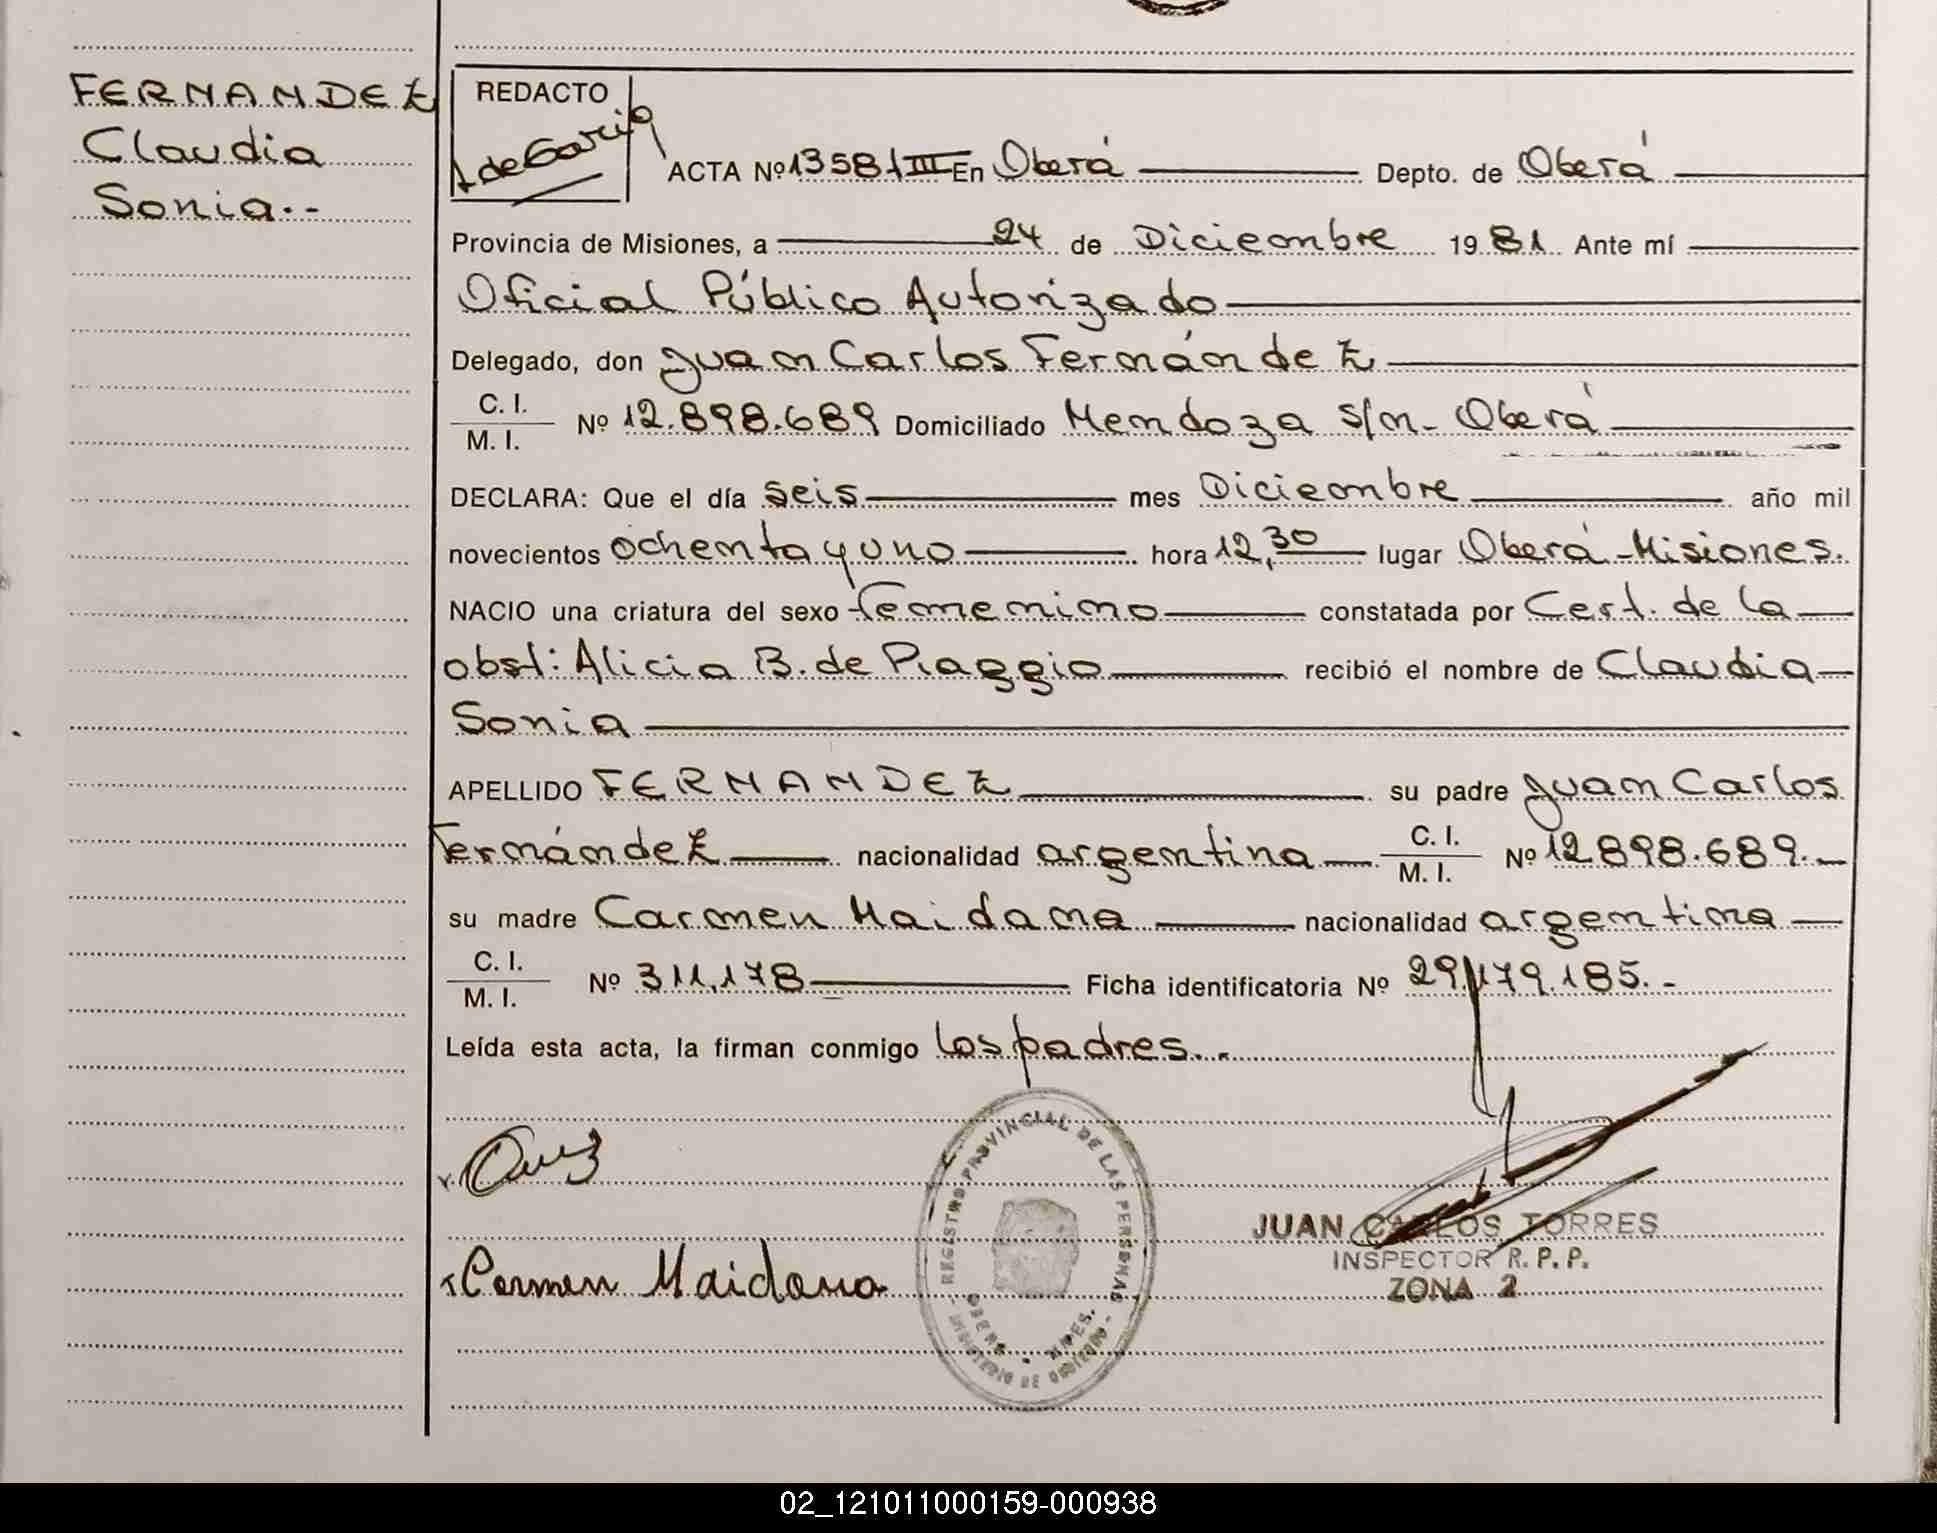 FERNANDEZ
Claudia
Sonia.-
REDACTO
ACTA Nº 1358 t III En Oberá Depto. de Oberá
Provincia de Misiones, a 24 de Diciembre 1981 Ante mí
Oficial Público Autorizado
Delegado, don Juan Carlos Fernández
C. I.
M. I. Nº 12.898.689 Domiciliado Mendoza s/n - Oberá
DECLARA: Que el día seis mes Diciembre año mil
novecientos ochenta y uno hora 12,30 lugar Oberá - Misiones.
NACIO una criatura del sexo femenino constatada por Cert. de la
obst: Alicia B. de Piaggio recibió el nombre de Claudia
Sonia
APELLIDO FERNANDEZ su padre Juan Carlos
Fernández nacionalidad argentina C. I. M. I. Nº 12.898.689.-
su madre Carmen Maidana nacionalidad argentina
C. I.
M. I. Nº 311.178 Ficha identificatoria Nº 29.179.185.-
Leída esta acta, la firman conmigo los padres..
Carmen Maidana
REGISTRO PROVINCIAL DE LAS PERSONAS
OBERA - MNES.
MINISTERIO DE GOBIERNO
JUAN CARLOS TORRES
INSPECTOR R. P. P.
ZONA 2
02_121011000159-000938